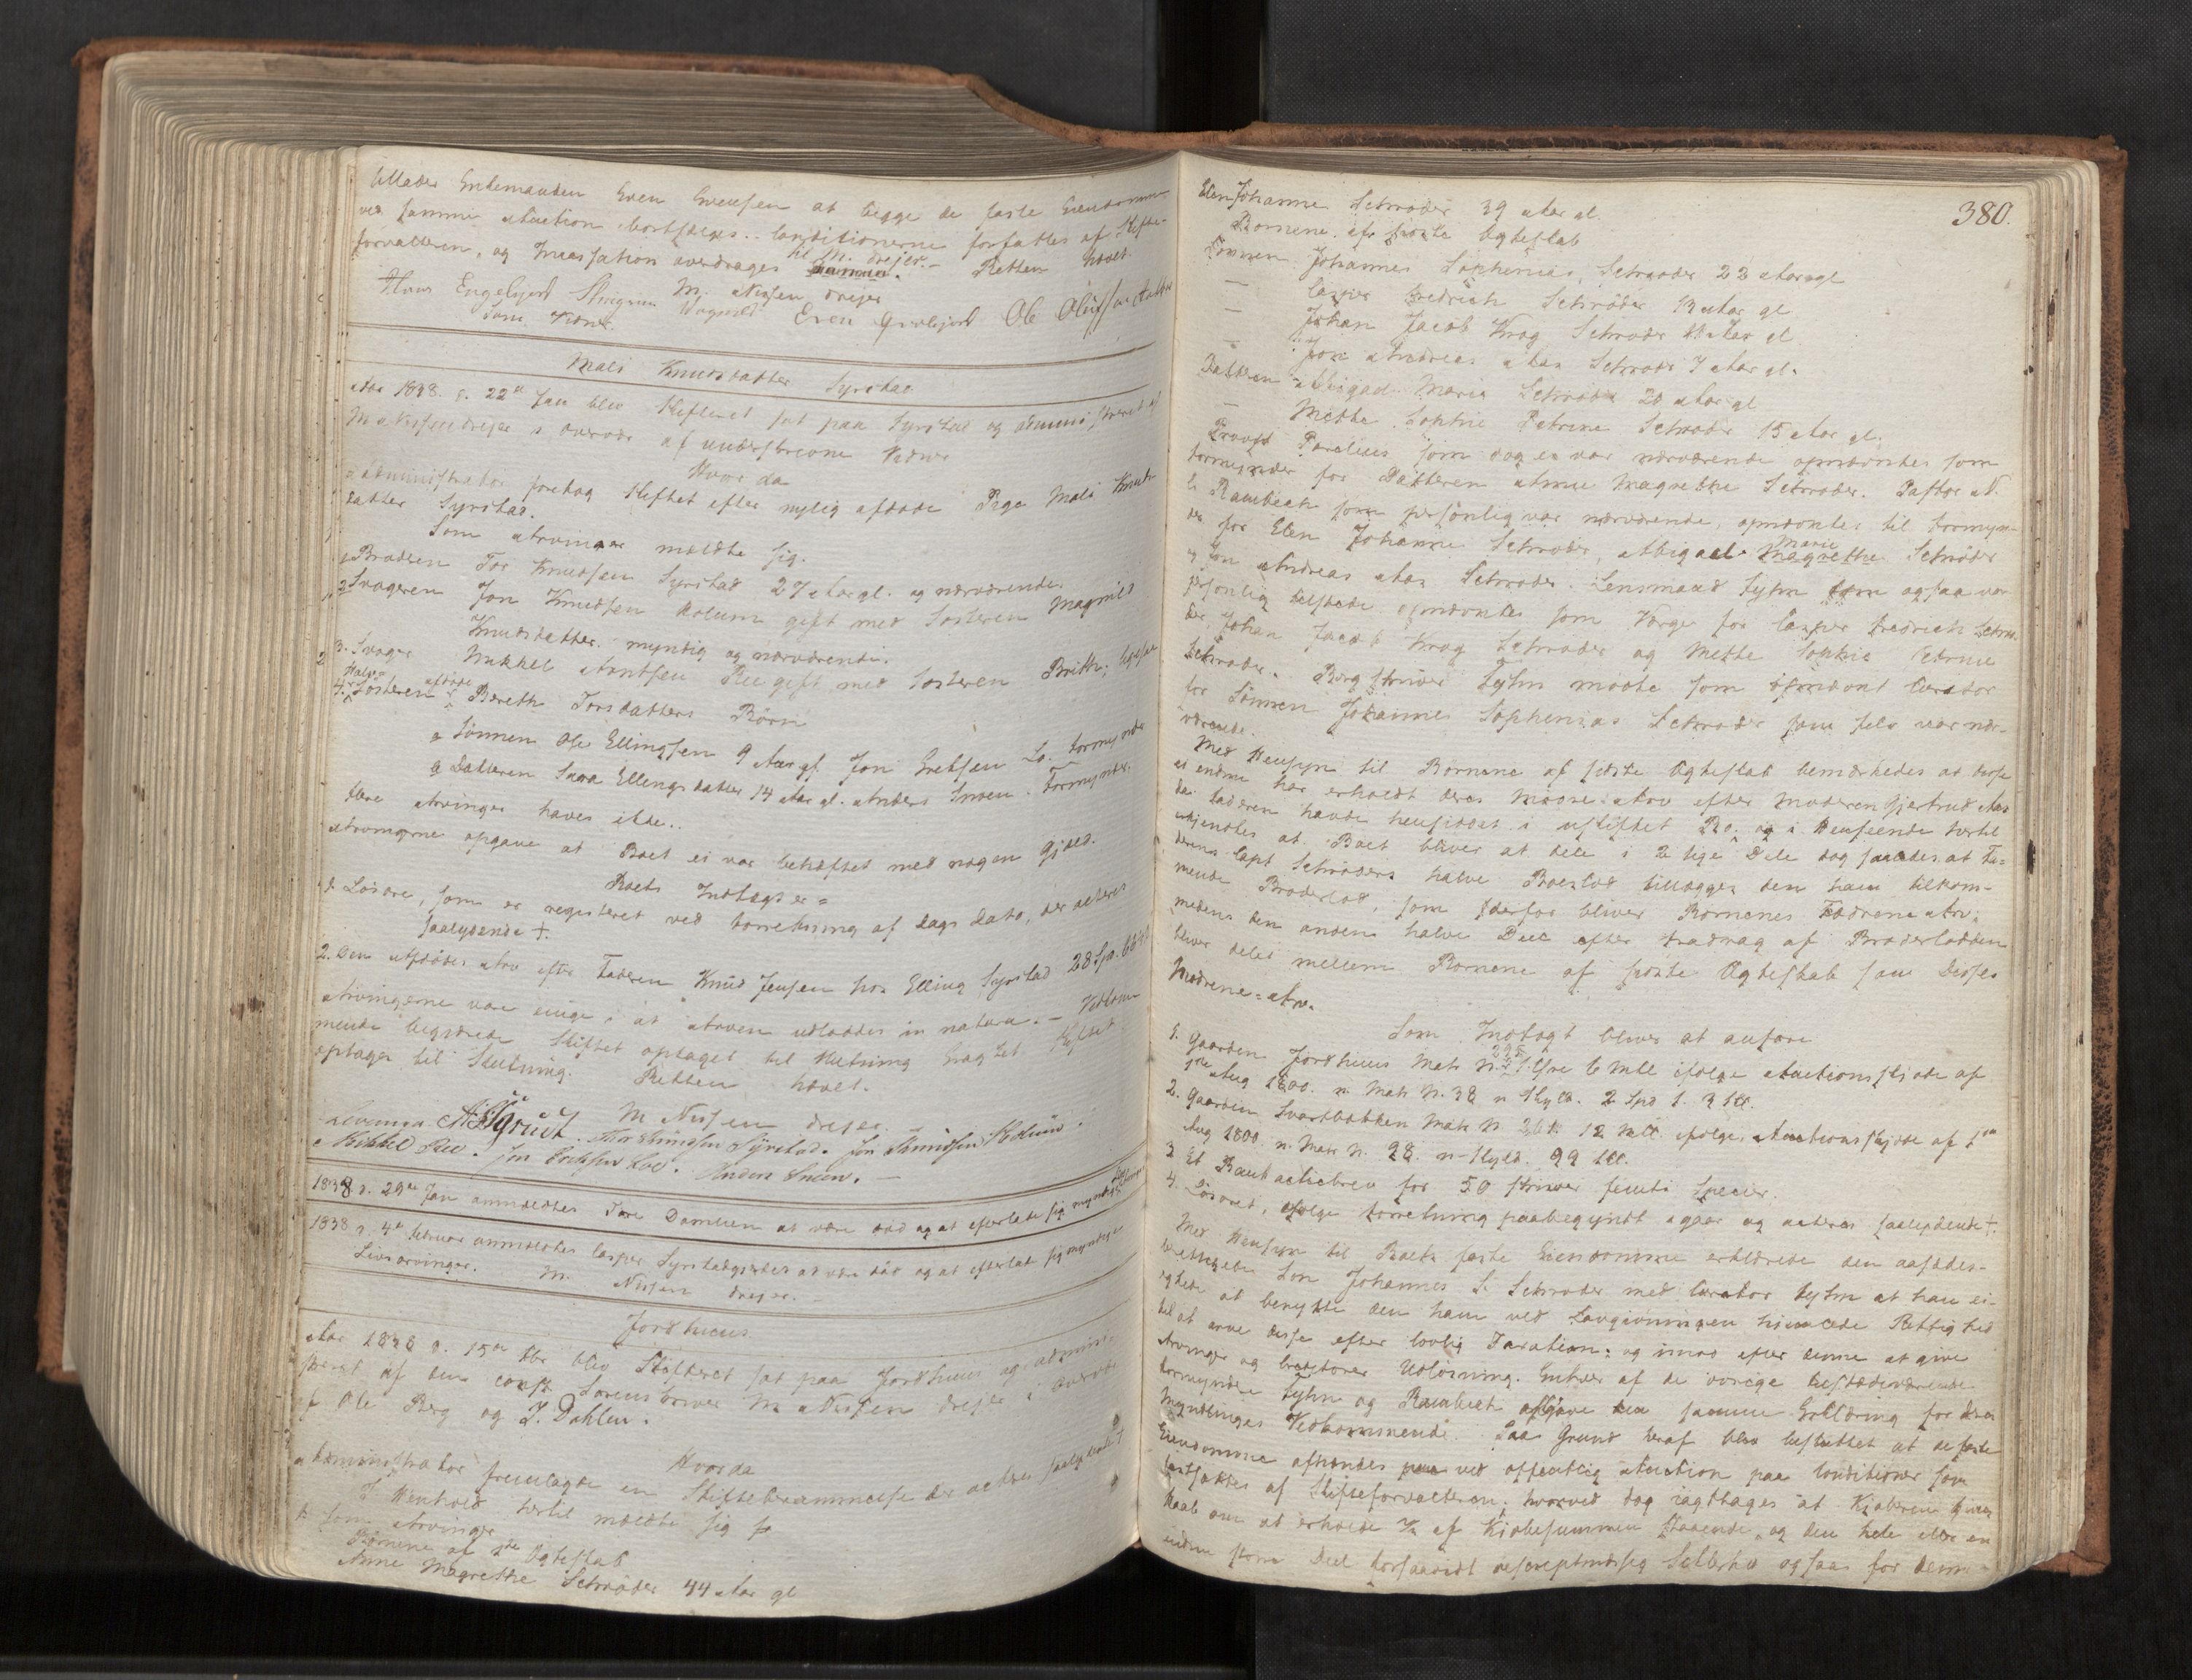 tillader Enkemanden Even Evensen at begge de faste Eiendomme
ved samme Auction bortsælges. Conditionerne forfattes af Skifte-
forvalteren, og Incassation overdrages til M. Dreyer. Retten hævet.
M. Nissen Dreyer
Hans Engelsjord Even Ole Olufsen
Mali Knudsdatter Syrstad
Aar 1838. d. 22de Jan blev Skifteret sat paa Syrstad og administreret af
M Nissen Dreyer i overvær af underskrevne Vidner
Hvor da
a Administrator foretog Skiftet efter nylig afdøde Pige Mali Knuds-
datter Syrstad.
Som Arvinger meldte sig.
1 Broderen Tor Knudsen Syrstad 27 Aar gl. og nærværende.
2 Svogeren Jon Knudsen Holum gift med Søsteren Magnild
Knudsdatter. myndig og nærværende.
3. Svoger Mikkel Arntsen Ree gift med Søsteren Brith; ligesaa
4. Halv-Søsteren afdøde Bereth Torsdatters Børn
a Sønnen Ole Ellingsen 9 Aar gl. Jon Eretsen Lo. Formynder
b Datteren Sara Ellingsdatter 14 Aar gl. Anders Snoen. Formynder.
Flere Arvinger haves ikke..
Arvingerne opgave at Boet ei var behæftet med nogen Gjæld.
Boets Indtægt er =
1. Løsøre, som er registeret ved Forretning af Dags Dato, der acteres
saalydende +.
2. Den Afdødes Arv efter Faderen Knud Jensen hos Elling Syrstad 28 Spd.
Arvingerne vare enige i at Arven udloddes in natura. – Vedkom-
mende begjærede Skiftet optaget til Slutning Eragtet Skiftet
optages til Slutning. Retten hævet.
M Nissen Dreyer.
Thor Knudsen Syrstad. Jon Knudsen Holum.
Mikkel Ree. Jon Erichsen Loe. Anders Snoen. –
1838 d. 29de Jan anmeldtes Tore Damlien at være død og at efterlade sig myndige
1838 d. 4de Februar anmeldtes Casper Syrstadgjerdes at være død og at efterlade sig myndige
Livsarvinger. M. Nissen Dreyer.
Jordhuus
Aar 1838 d. 15de Fbr blev Skifteret sat paa Jordhuus og admini-
streret af den const Sorenskriver M Nissen Dreyer i overvær
af Ole Berg og J. Dahlen.
Hvor da
a Administrator fremlagde en Skifteberammelse der acteres saalydende +
I Henhold hertil meldte sig
b Som Arvinger
Børnene af 1ste Ægteskab
Anne Magrethe Schrøder 44 Aar gl
380.
Elen Johanne Schrøder 39 Aar gl.
Børnene af sidste Ægteskab
Sønnen Johannes Sophenias Schrøder 22 Aar gl
— Casper Fredrich Schrøder 13 Aar gl
— Johan Jacob Krog Schrøder 11 Aar gl
— Jon Andreas Aas Schrøder 7 Aar gl.
Datteren Abigael Maria Schrøder 20 Aar gl
— Mette Sophie Petrine Schrøder 15 Aar gl.
Provst Parelius som dog ei var nærværende opnævntes som
Formynder for Datteren Anne Magrethe Schrøder. Pastor N.
L. Rambech som personlig var nærværende, opnævntes til Formyn-
der for Elen Johanne Schrøder, Abigael Marie Schrøder
og Jon Andreas Aas Schrøder. Lensmand Sylm som ogsaa var
personlig tilstæde opnævntes som Værge for Casper Fredrich Schrø-
der, Johan Jacob Krog Schrøder og Mette Sophie Petrine
Schrøder. Bergskriver Sylm mødte som opnævnt Curator
for Sønnen Johannes Sophenias Schrøder som selv var nær-
værende.
Med Hensyn til Børnene af første Ægteskab bemærkedes at disse
ei endnu har erholdt deres Mødrene Arv efter Moderen Gjertrud Aas
da Faderen havde hensiddet i uskiftet Bo; og i Henseende hertil
eragtedes at Boet bliver at dele i 2 lige Dele dog saaledes at Fa-
derens Capt Schrøders halve Boeslod tillægges den ham tilkom-
mende Broderlod, som derfor bliver Børnenes Fædrene Arv,
medens den anden halve Deel efter Fradrag af Broderlodden
bliver deles mellem Børnene af første Ægteskab som disses
Mødrene = Arv.
Som Indtægt bliver at anføre
1. Gaarden Jordhuus Matr N. 1 Øre 6 Mll ifølge Auctionsskjøde af
1ste Aug 1800. n. Matr N. 38 n Skyld. 2 Spd 1. 3 ß.
2. Gaarden Svartbækken Matr N 261. 12 Mll. ifølge Auctionsskjøde af 1ste
Aug 1800. n. Matr N. 28. n Skyld. 99 ß.
3 Et Bankactiebrev for 50 skriver femti Specier.
4. Løsøret, ifølge Forretning paabegyndt igaar og acteres saalydende +.
Med Hensyn til Boets faste Eiendomme erklærede den aasædes-
berettigede Søn Johannes S. Schrøder med Curator Sylm at han ei
agtede at benytte den ham ved Lovgivningen hjemlede Rettighed
til at arve disse efter lovlig Taxation, og imod efter denne at give
Arvinger og Creditorer Udløsning. Enhver af de øvrige tilstædeværende
Formyndere Sylm og Rambech afgave den samme Erklæring for deres
Myndlinges Vedkommende. Paa Grund heraf blev besluttet at de faste
Eiendomme afhændes ved offentlig Auction paa Conditioner som
forfattes af Skifteforvalteren; hvorved dog iagttages at Kjøberen gives
Haab om at erholde ⅔ af Kjøbesummen staaende, og den hele eller en
endnu større Deel forsaavidt ogsaa for dem